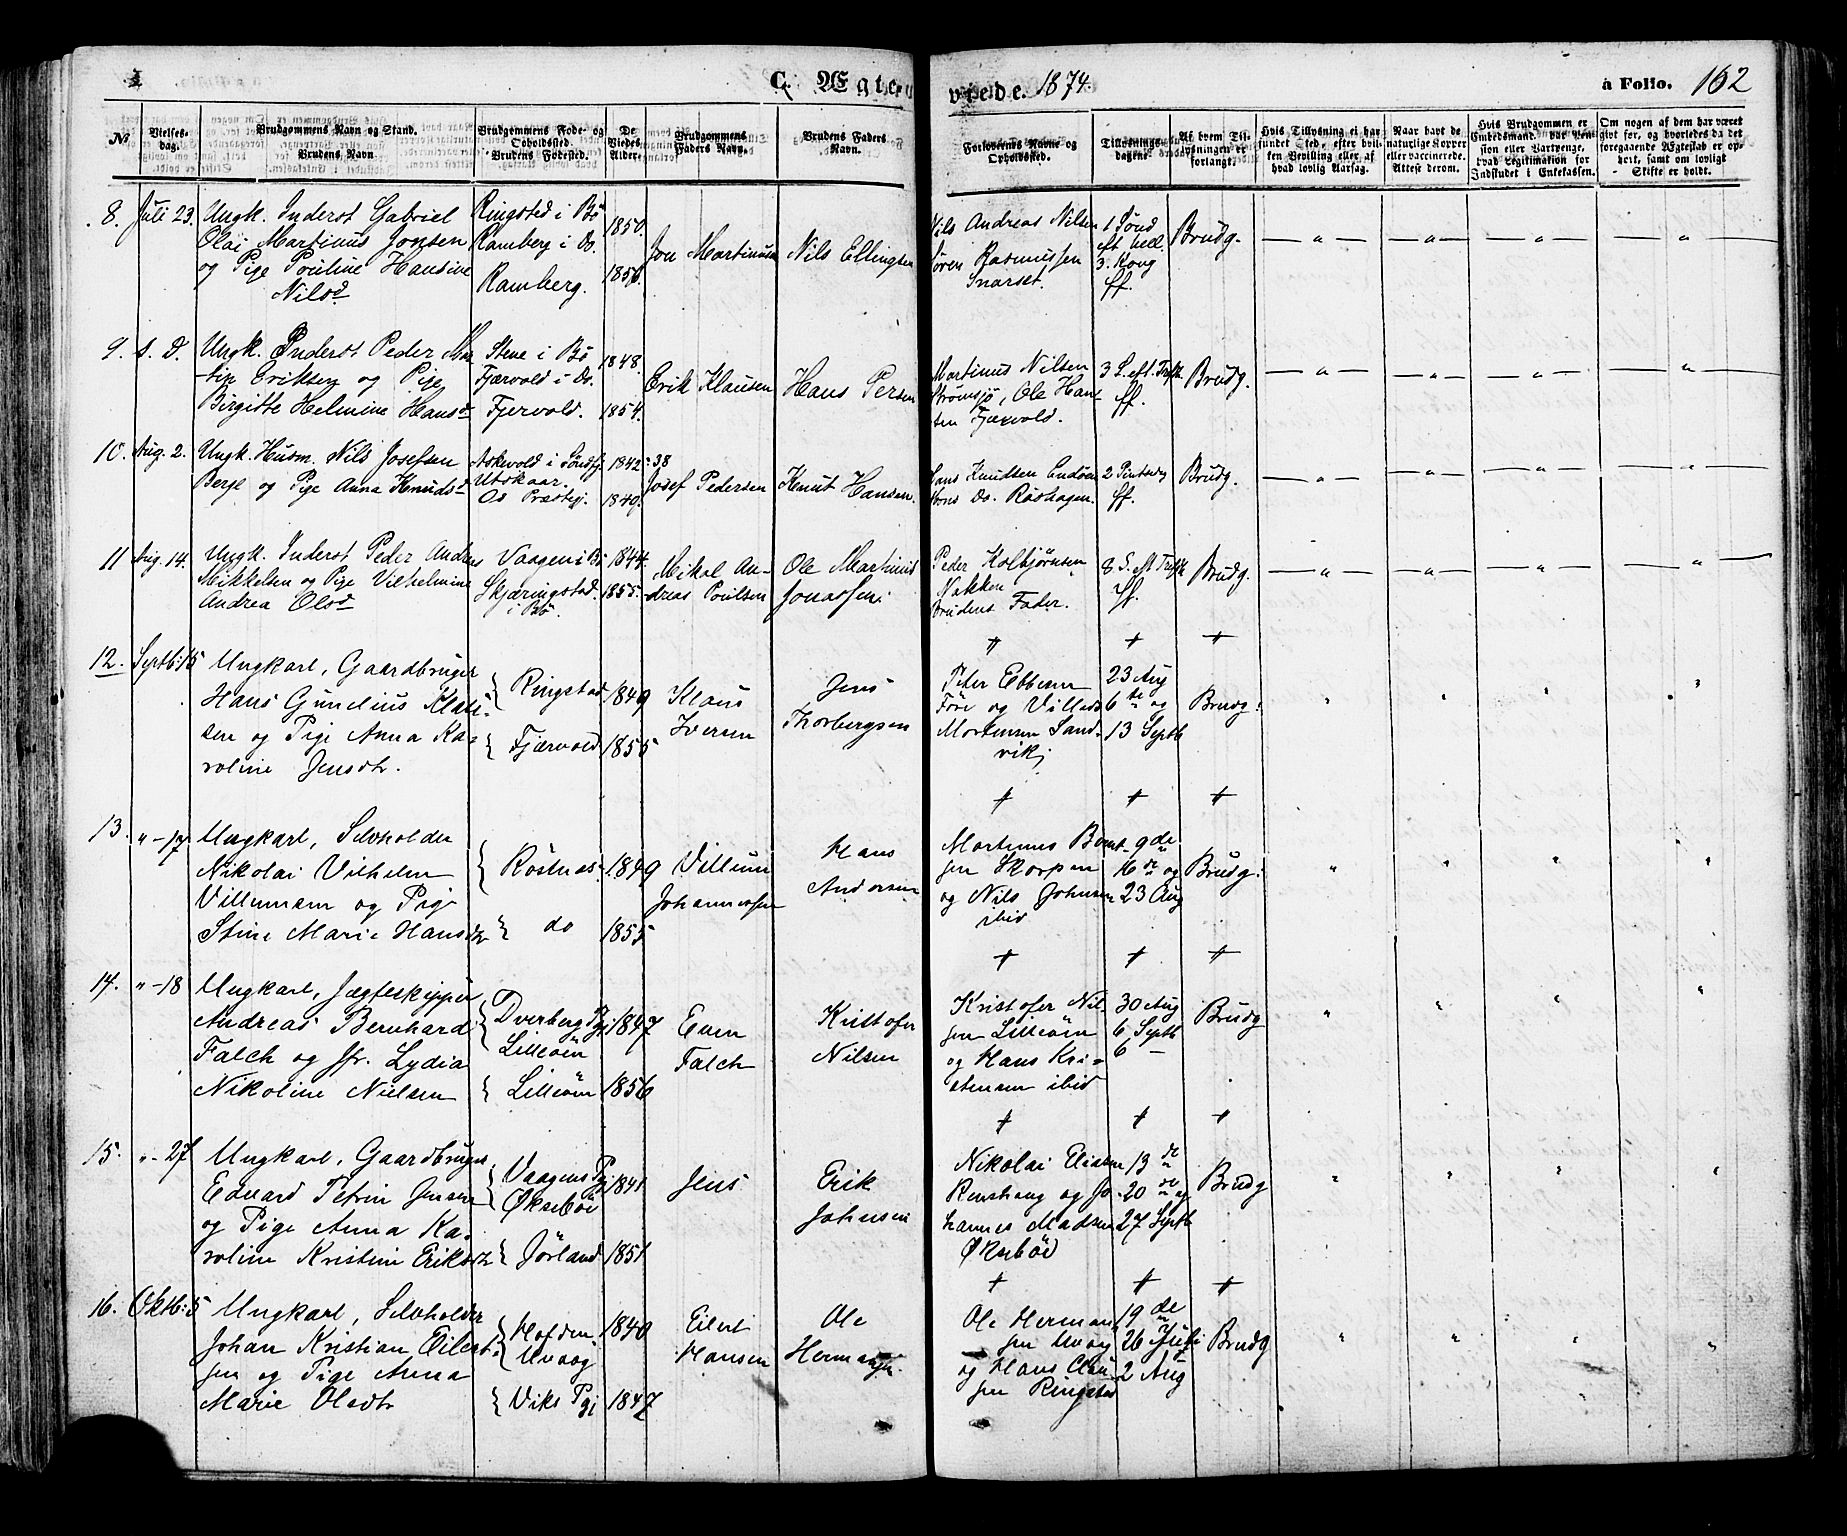 C. Ægteviede. 1874. à Folio. 162
№
Vielses-dag.
Brudgommens Navn og Stand.
Brudens Navn
Brudgommens Føde- og Opholdssted.
Brudens Fødested.
De Viedes Alder.
Brudgommens Faders Navn.
Brudens Faders Navn.
Forlovernes Navne og Opholdssted.
Tillysnings-dagene.
Af hvem Til-lysningen er forlangt.
Hvis Tillysning ei har fundet Sted, efter hvil-ken Bevilling eller af hvad lovlig Aarsag.
Naar havt de naturlige Kopper eller vaccinerede. Attest derom.
Hvis Brudgommen er Embedsmand, har Pen-sion eller Vartpenge, hvad Legitimation for Indskudet i Enkekassen.
Om nogen af dem har været givt før, og hvorledes da det foregaaende Ægteskab er op-hørt, samt om lovligt Skifte er holdt.
8. Juli 23. Ungk. Inderst Gabriel
Olai Martinus Jonsen
og Pige Pouline Hansine
Nilsd
Ringsted i Bö
Ramberg i Do.
Ramberg.
1850.
1856.
Jon Martinusen
Nils Ellingsen
Nils Andreas Nilsen
Sören Rasmussen
Snarset.
1 Sönd
eft hell.
3. Kong
ff.
Brudg.
9. s. D. Ungk. Inderst Peder Mar
-tin Eriksen og Pige
Birgitte Helmine Hansd
Steve i Bö
Fjærvold i Do.
Fjervold.
1848.
1854.
Erik Klausen
Hans Persen
Martinus Nilsen
Strömsjö, Ole Han-
sen Fjærvold.
3 S. eft. Trefk
ff.
Brudg.
10. Aug. 2. Ungk. Husm. Nils Josefsen
Berge og Pige Anna Knudsd
Askvold i Söndfj
Utskaar.
Os Præstegj.
1842-38
1849.
Josef Pedersen
Knut Hansen.
Hans Knudsen
Do. Röshagen.
2 Pintsedag
ff.
Brudg.
11 Aug. 14. Ungk. Inderst Peder Andreas
Mikkelsen og Pige Vilhelmine
Andrea Olsd
Vaagen i Bö
Skjæringstad.
i Bö.
1844.
1855.
Mikal An-
dreas Poulsen
Ole Martinus
Jonassen
Peder Kolbjörnsen
Nakken
Brudens Fader.
8 S. eft Trefk
ff.
Brudg.
12. Septb: 15 Ungkarl, Gaardbruger
Hans Gunelius Klau-
sen og Pige Anna Ka-
roline Jensdtr.
Ringstad
Fjærvold
1849
1855
Klaus
Iversen
Jens
Thorbergsen
Peter Ebbesen
Före og Villads
Mortensen Sand-
vik
23 Aug
6te og
13 Septb
Brudg:
13. " - 17 Ungkarl, Selvholder
Nikolai Vilhelm
Villumsen og Pige
Stine Marie Hansdtr
Röstnes
do
1849
1855
Villum
Johannessen
Hans
Andersen
Mortinus Bernt-
sen Skorpen
og Nils Johnsen
ibid
9de
16de og
23 Aug
Brudg:
14. " - 18 Ungkarl, Jægteskipper
Andreas Bernhard
Falch og Jfr. Lydia
Nikoline Nielsen
Dverberg Pgj
Lilleöen
Lilleöen
1847
1856
Even
Falch
Kristofer
Nilsen
Kristofer Nil-
sen Lilleöen
og Hans Kri-
stensen ibid
30 Aug
6 Septb
6 —
Brudg
15. " - 27 Ungkarl, Gaardbruger
Edvard Petrin Jensen
og Pige Anna Ka-
roline Kristine Eriksdtr
Vaagens Pgj
Øksebön
Jörland
1841
1851
Jens
Erik
Johnsen
Nikolai Eliasen
Renshaug og Jo-
hannes Madsen
Øksebön
13de
20de og
27 Septb
Brudg
16. Oktb: 5 Ungkarl, Selvholder
Johan Kristian Eilert-
sen og Pige Anna
Marie Olsdtr
Hofden
Uvaag
Viks Pgj
1840
1847
Eilert
Hansen
Ole
Hermansen
Ole Herman-
sen Uvaag
og Hans Clau-
sen Ringstad
19de
26 Juli
2 Aug
Brudg